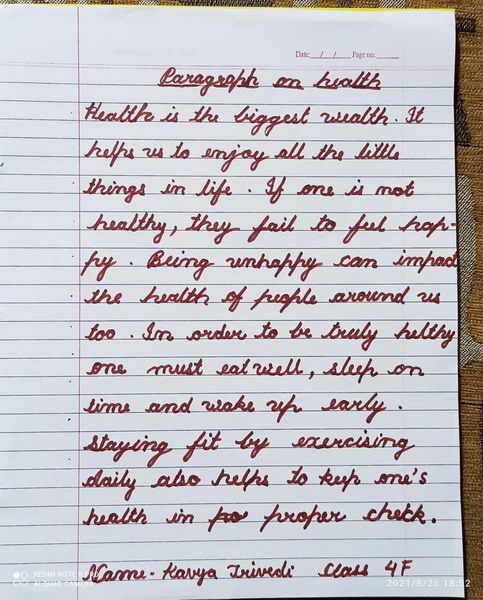 Date: / / Page no:
Paragraph on health
Health is the biggest wealth. It
helps us to enjoy all the little
things in life. If one is not
healthy, they fail to feel hap-
py. Being unhappy can impact
the health of people around us
too. In order to be truly helthy
one must eat well, sleep on
time and wake up early.
Staying fit by exercising
daily also helps to keep one's
health in proper check.
Name- Kavya Trivedi Class 4F
REDMI NOTE 8 PRO
AI QUAD CAMERA
2021/8/26 18:52